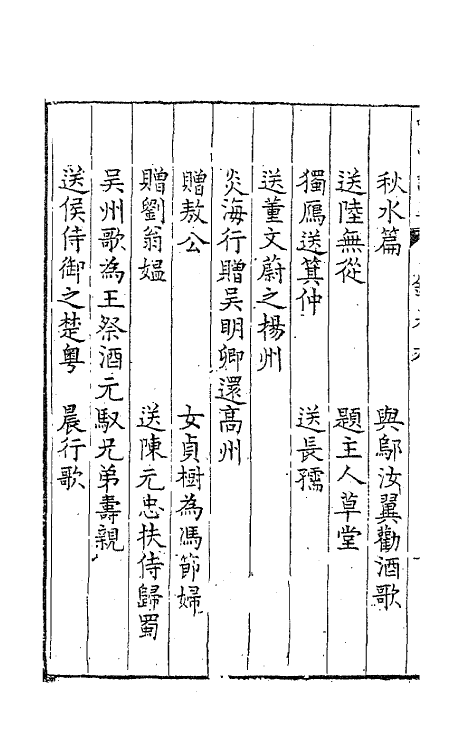 秋水篇　與鄔汝翼勸酒歌
送陸無從　題主人草堂
獨鴈送箕仲　送長孺
送董文蔚之楊州
炎海行贈吴明卿還高州
贈敖公　女貞樹為馮節婦
贈劉翁媪　送陳元忠扶侍歸蜀
吴州歌為王祭酒元馭兄弟壽親
送侯侍御之楚粤　晨行歌